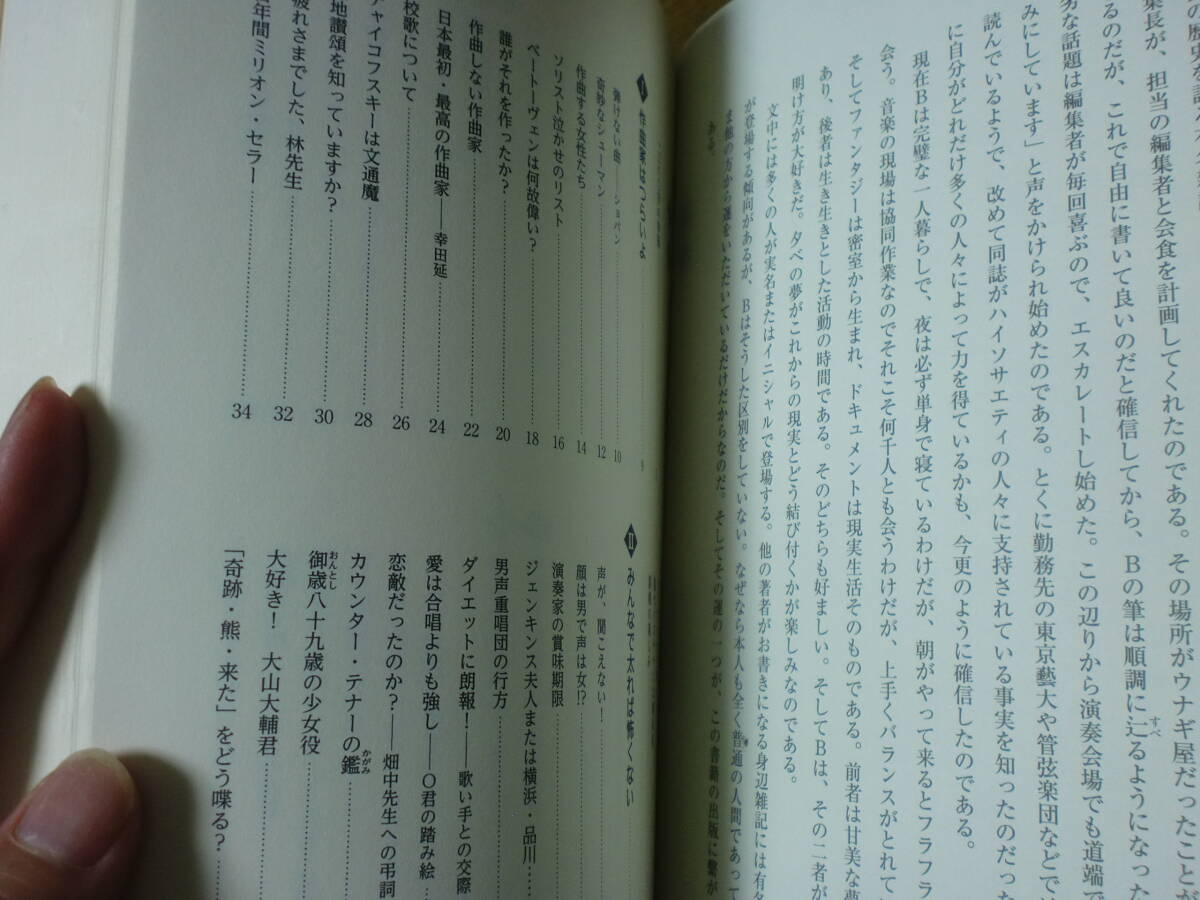 の歴史を語
集長が、担当の編集者と会食を計画してくれたのである。その場所がウナギ屋だったことが
るのだが、これで自由に書いて良いのだと確信してから、Bの筆は順調に辷るようになった
すべ
劣な話題は編集者が毎回喜ぶので、エスカレートし始めた。この辺りから演奏会場でも道端で
みにしています」と声をかけられ始めたのである。とくに勤務先の東京藝大や管弦楽団などで
読んでいるようで、改めて同誌がハイソサエティの人々に支持されている事実を知ったのだった
に自分がどれだけ多くの人々によって力を得ているかも、今更のように確信したのである。
現在Bは完璧な一人暮らしで、夜は必ず単身で寝ているわけだが、朝がやって来るとフラフラ
会う。音楽の現場は協同作業なのでそれこそ何千人とも会うわけだが、上手くバランスがとれて
そしてファンタジーは密室から生まれ、ドキュメントは現実生活そのものである。前者は甘美な夢
あり、後者は生き生きとした活動の時間である。そのどちらも好ましい。そしてBは、その二者が
明け方が大好きだ。夕べの夢がこれからの現実とどう結び付くかが楽しみなのである。
文中には多くの人が実名またはイニシャルで登場する。他の著者がお書きになる身辺雑記には有名
が登場する傾向があるが、Bはそうした区別をしていない。なぜなら本人も全く普通の人間であって
ま他の方から運をいただいているだけだからなのだ。そしてその運の一つが、この書籍の出版に繋が
かそ。
I 作曲家はつらいよ 9
弾けない曲――ショパン 10
奇妙なシューマン 12
作曲する女性たち 14
ソリスト泣かせのリスト 16
ベートーヴェンは何故偉い? 18
誰がそれを作ったか? 20
作曲しない作曲家 22
日本最初・最高の作曲家――幸田延 24
校歌について 26
チャイコフスキーは文通魔 28
地讃頌を知っていますか? 30
疲れさまでした、林先生 32
年間ミリオン・セラー 34
II みんなで太れば怖くない
声が、聞こえない!
顔は男で声は女!?
演奏家の賞味期限
ジェンキンス夫人または横浜・品川
男声重唱団の行方
ダイエットに朗報!――歌い手との交際
愛は合唱よりも強し――O君の踏み絵
恋敵だったのか?――畑中先生への弔詞
カウンター・テナーの鑑
かがみ
御歳八十九歳の少女役
おんとし
大好き! 大山大輔君
「奇跡・熊・来た」をどう喋る?